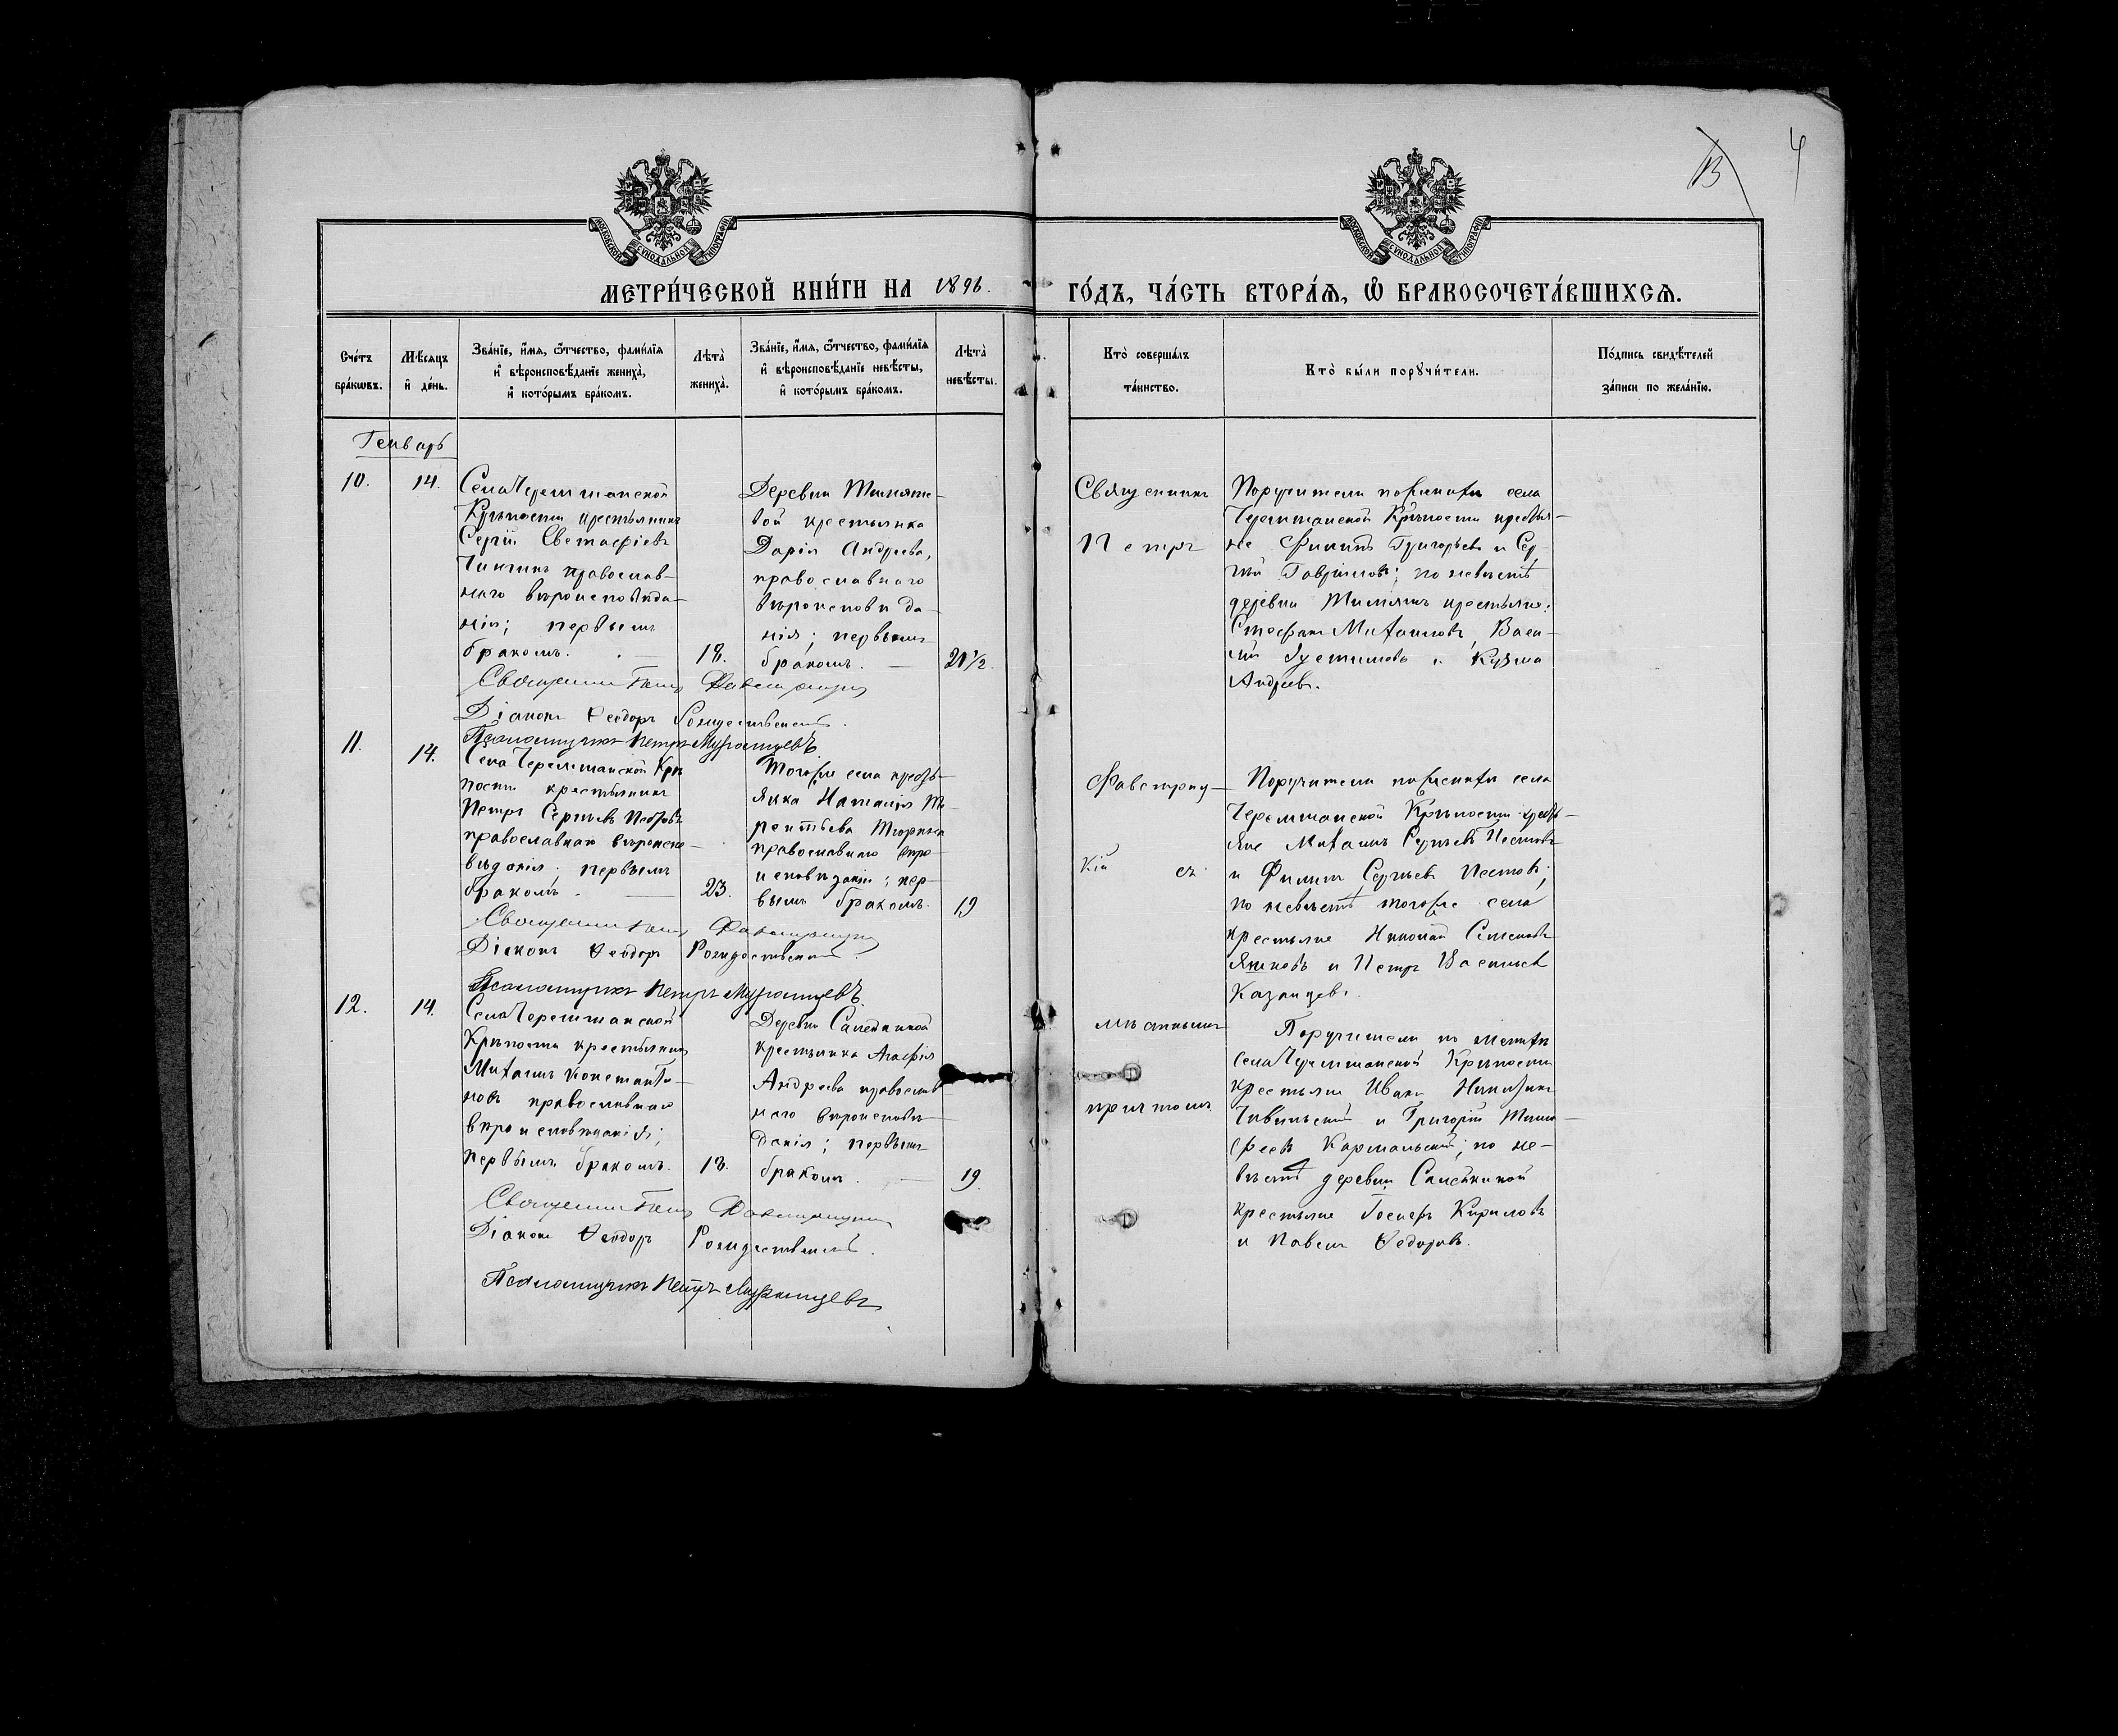 13 4
МОСКОВСКОЙ СУНОДАЛЬНОЙ ТИПОГРАФІИ
МОСКОВСКОЙ СУНОДАЛЬНОЙ ТИПОГРАФІИ
МЕТРИ́ЧЕСКОЙ КНИ́ГИ НА 1896. ГО́ДЪ, ЧА́СТЬ ВТОРА́Ѧ, Ѽ БРАКОСОЧЕТА́ВШИХСѦ.
Сче́тъ
бра́кѡвъ.
Мѣ́сяцъ
и҆ де́нь.
Зва́нїе, и҆́мя, ѻ҆́тчество, фами́лїя
и҆ вѣроисповѣ́данїе жениха̀,
и҆ кото́рымъ бра́комъ.
Лѣта̀
жениха̀.
Зва́нїе, и҆́мя, ѻ҆́тчество, фами́лїя
и҆ вѣроисповѣ́данїе невѣ́сты,
и҆ кото́рымъ бра́комъ.
Лѣта̀
невѣ́сты.
Кто̀ соверша́лъ
та́инство.
Кто̀ бы́ли порꙋчи́тели.
По́дпись свидѣ́телей
за́писи по жела́нїю.
Генварь
10.
14.
Села Черемшанской
Крѣпости крестьянинъ
Сергій Евстафіевъ
православ-
наго вѣроисповѣда-
нія; первымъ
бракомъ.
18.
Деревни
вой крестьянка
Дарія Андреева,
православнаго
вѣроисповѣда-
нія; первымъ
бракомъ.
21½.
Священникъ Петръ
Поручители по женихѣ села
Черемшанской Крѣпости крестья-
не Филипъ Григорьевъ и Сер-
гій Гавриловъ; по невѣстѣ
деревни крестьяне:
Стефанъ Михаиловъ, Васи-
лій Іустиновъ и Кузма
Андреевъ.
Священникъ
Діаконъ Ѳеодоръ Рождественскій.
Псаломщикъ Петръ
11.
14.
Села Черемшанской Крѣ
пости крестьянинъ
Петръ Сергѣевъ
православнаго вѣроиспо-
вѣданія; первымъ
бракомъ.
23.
Того же села кресть-
янка Наталія Те-
рентьева
православнаго вѣро-
исповѣданія; пер-
вымъ бракомъ.
19
кій съ
Поручители по женихѣ села
Черемшанской Крѣпости кресть-
яне Михаилъ Сергѣевъ
и Филипъ Сергѣевъ
по невѣстѣ того же села
крестьяне Николай Семеновъ
и Петръ Васильевъ
Казанцевъ.
Священникъ
Діаконъ Ѳеодоръ Рождественскій.
Псаломщикъ Петръ
12.
14.
Села Черемшанской
Крѣпости крестьянинъ
Михаилъ Константи-
новъ православнаго
вѣроисповѣданія;
первымъ бракомъ.
18.
Деревни
крестьянка Агафія
Андреева православ
наго вѣроисповѣ-
данія; первымъ
бракомъ.
19.
мѣстнымъ
причтомъ
Поручители по женихѣ
села Черемшанской Крѣпости
крестьяне Иванъ
и Григорій Тимо-
феевъ по не-
вѣстѣ деревни
крестьяне Іосифъ Кириловъ
и Павелъ Ѳедоровъ.
Священникъ
Діаконъ Ѳеодоръ Рождественскій.
Псаломщикъ Петръ